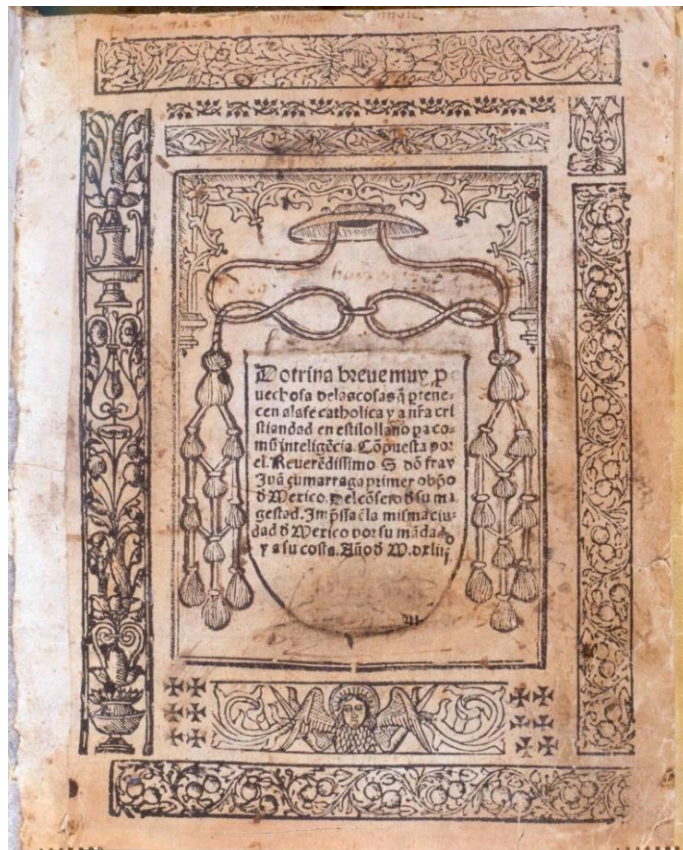 Dotrina breue muy p
uechosa delas cosas q̃ ptene-
cen ala fe catholica y a nr̃a cri
stiandad en estilo llano pa co-
mũ inteligẽcia. Cõpuesta por
el. Reuerẽdissimo S. dõ fray
Juã çumarraga primer obpo
d̃ Mexico. del cõsejo d̃ su ma
gestad. Imp̃ssa ẽla misma ciu-
dad d̃ Mexico por su mãdado
y a su costa. Año d̃ M.dxliij